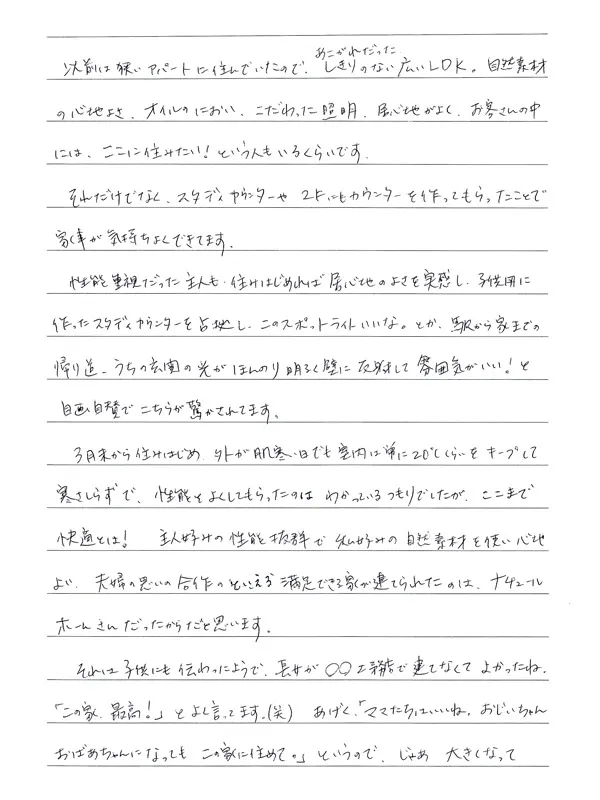 あこがれだった
以前は狭いアパートに住んでいたので、しきりのない広いLDK。自然素材
の心地よさ、オイルのにおい、こだわった照明、居心地がよく、お客さんの中
には、ここに住みたい！という人もいるくらいです。
それだけでなく、スタディカウンターや 2Fにもカウンターを作ってもらったことで
家事が気持ちよくできてます。
性能重視だった主人も、住みはじめれば居心地のよさを実感し、子供用に
作ったスタディカウンターを占拠し、このスポットライトいいな。とか、駅から家までの
帰り道、うちの玄関の光がほんのり明るく壁に反射して雰囲気がいい！と
自画自賛でこちらが驚かされてます。
3月末から住みはじめ、外が肌寒い日でも室内は常に20℃くらいをキープして
寒さしらずで、性能をよくしてもらったのはわかっているつもりでしたが、ここまで
快適とは！ 主人好みの性能抜群で私好みの自然素材を使い心地
よい、夫婦の思いの合作のといえる満足できる家が建てられたのは、ナチュール
ホームさんだったからだと思います。
それは子供にも伝わったようで、長女が○○工務店で建てなくてよかったね。
「この家、最高！」とよく言ってます。(笑) あげく、「ママたちはいいね。おじいちゃん
おばあちゃんになってもこの家に住めて。」というので、じゃあ 大きくなって